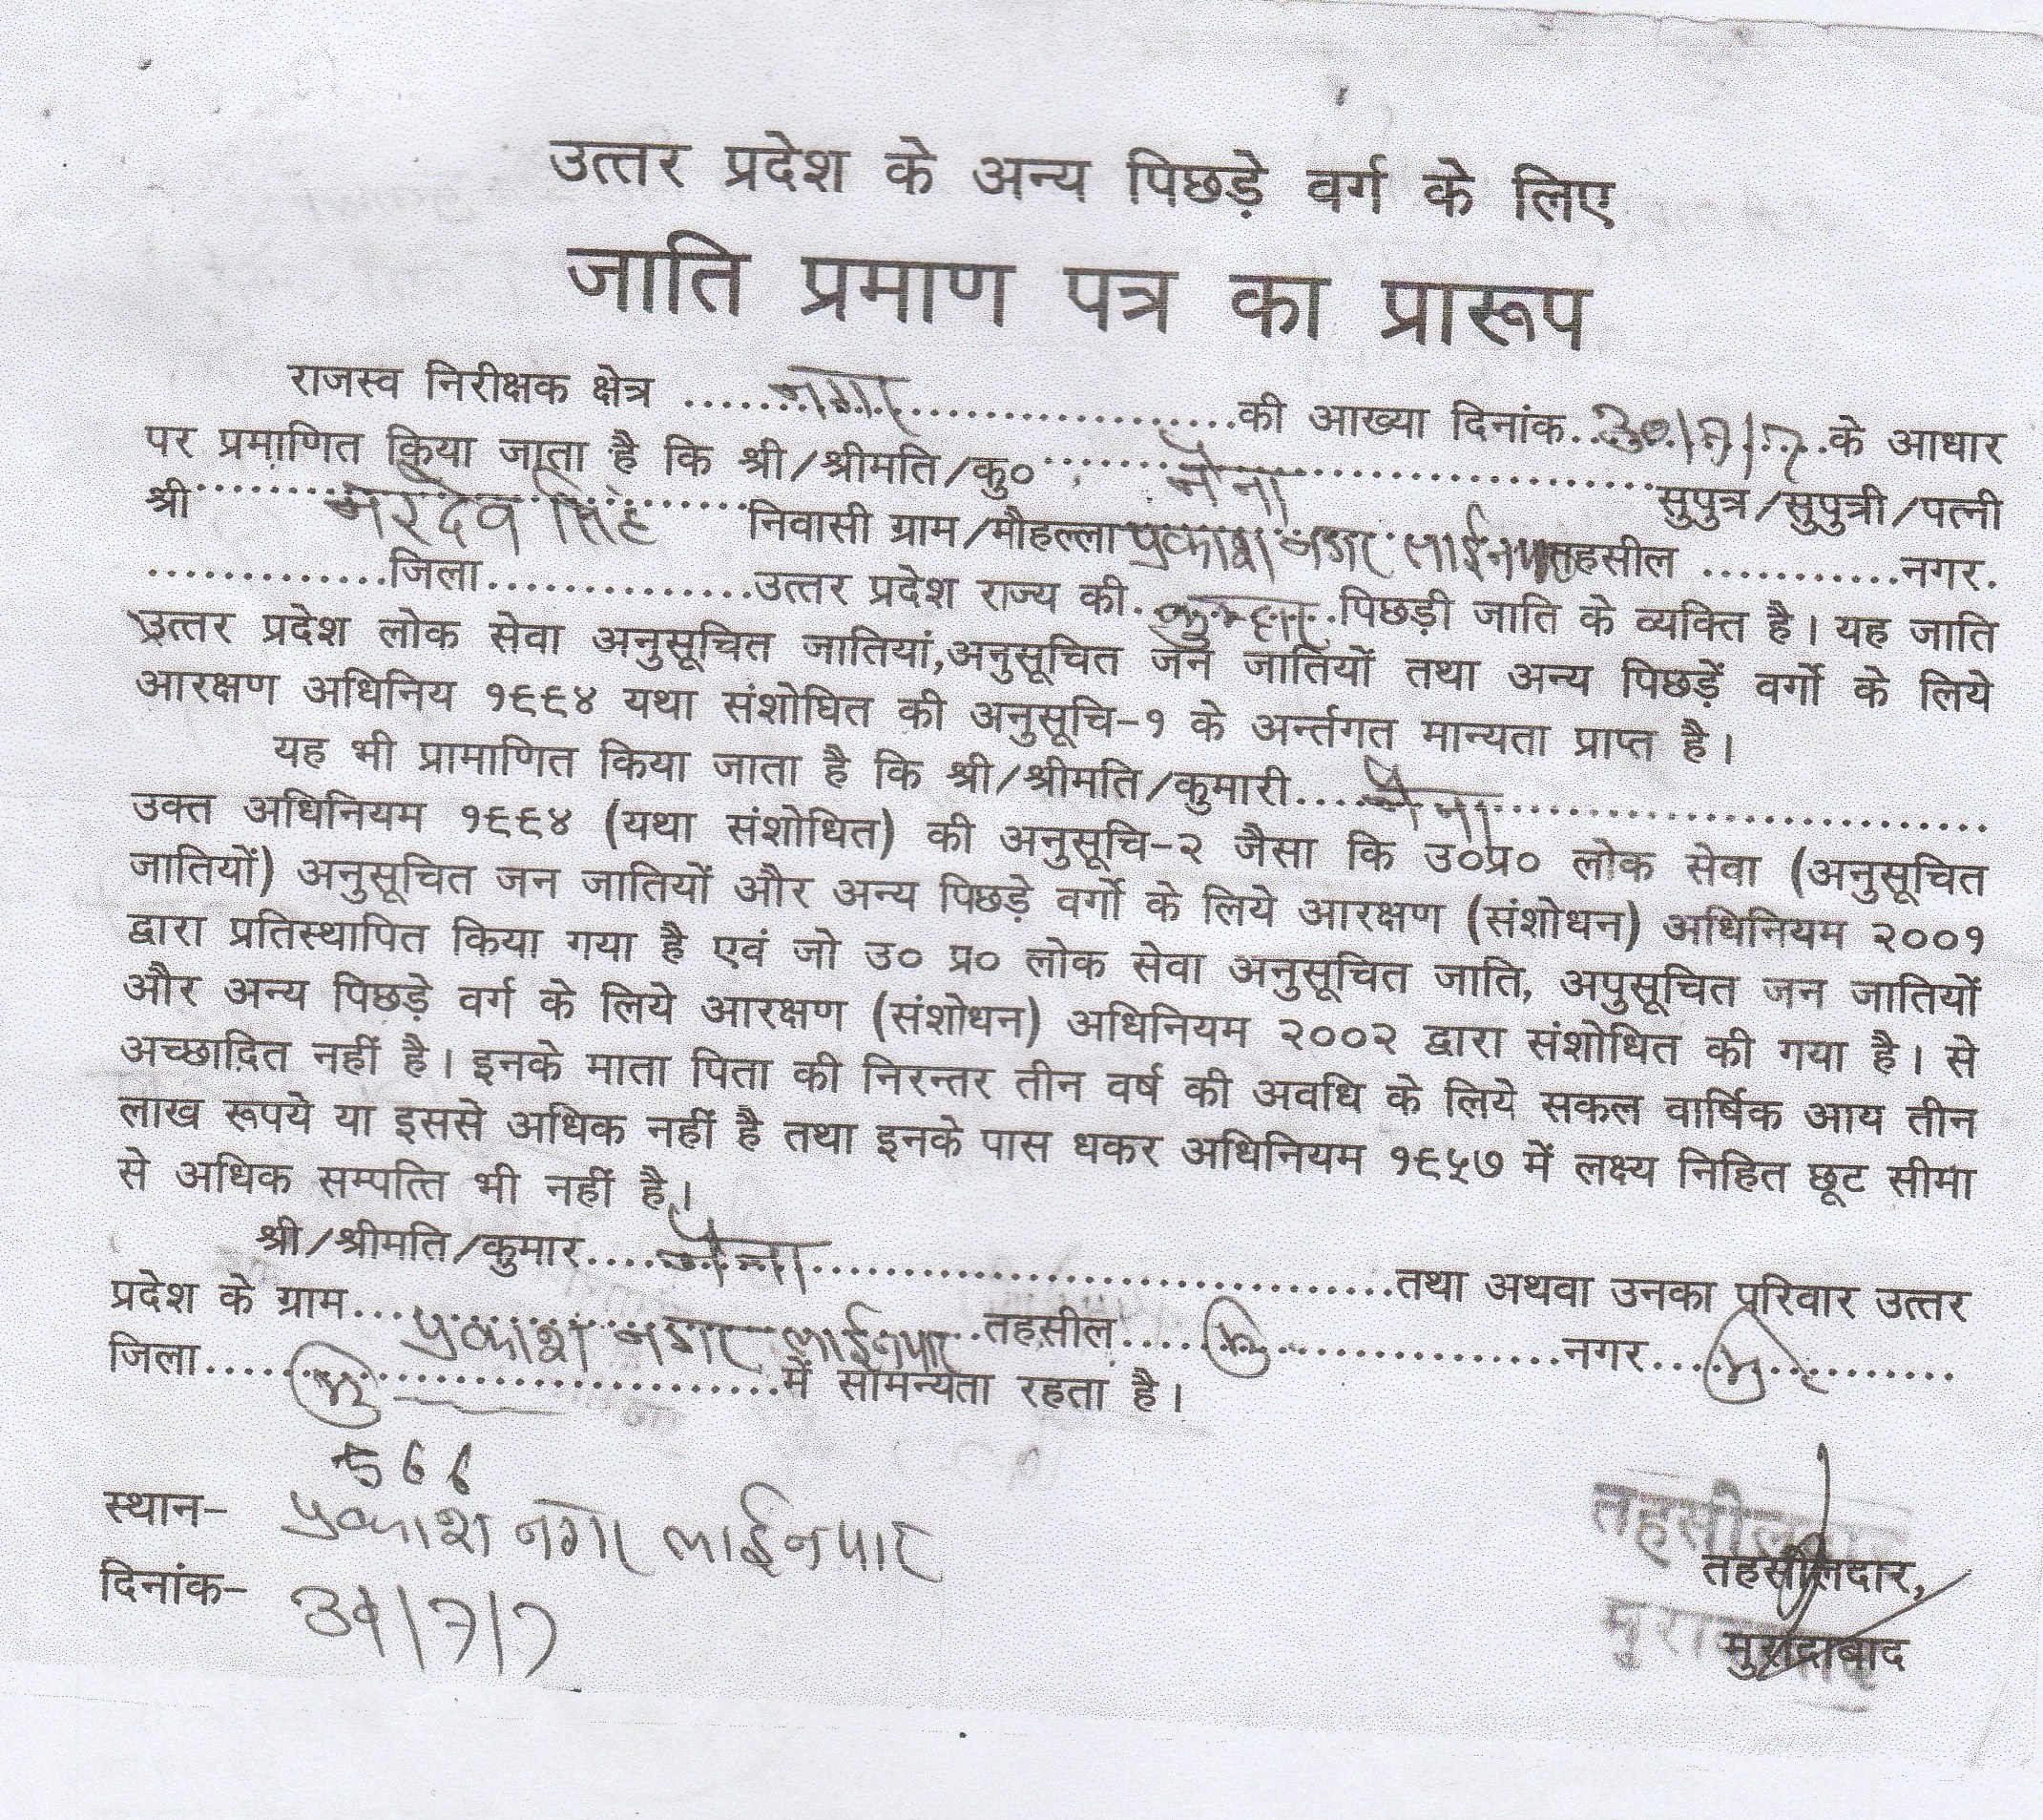 उत्तर प्रदेश के अन्य पिछड़े वर्ग के लिए
जाति प्रमाण पत्र का प्रारूप
राजस्व निरीक्षक क्षेत्र ............नगर............................की आख्या दिनांक............के आधार
पर प्रमाणित किया जाता है कि श्री/श्रीमति/कु०............नैना............................सुपुत्र/सुपुत्री/पत्नी
श्री............नरदेव सिंह............निवासी ग्राम/मौहल्ला प्रकाश नगर लाईनपार तहसील ............नगर.
.............जिला...............उत्तर प्रदेश राज्य की............पिछड़ी जाति के व्यक्ति है। यह जाति
उत्तर प्रदेश लोक सेवा अनुसूचित जातियां,अनुसूचित जन जातियों तथा अन्य पिछड़ें वर्गो के लिये
आरक्षण अधिनिय १९९४ यथा संशोघित की अनुसूचि-१ के अर्न्तगत मान्यता प्राप्त है।
यह भी प्रामाणित किया जाता है कि श्री/श्रीमति/कुमारी.......नैना..............................
उक्त अधिनियम १९९४ (यथा संशोधित) की अनुसूचि-२ जैसा कि उ०प्र० लोक सेवा (अनुसूचित
जातियों) अनुसूचित जन जातियों और अन्य पिछड़े वर्गो के लिये आरक्षण (संशोधन) अधिनियम २००१
द्वारा प्रतिस्थापित किया गया है एवं जो उ० प्र० लोक सेवा अनुसूचित जाति, अपुसूचित जन जातियों
और अन्य पिछड़े वर्ग के लिये आरक्षण (संशोधन) अधिनियम २००२ द्वारा संशोधित की गया है। से
अच्छादित नहीं है। इनके माता पिता की निरन्तर तीन वर्ष की अवधि के लिये सकल वार्षिक आय तीन
लाख रूपये या इससे अधिक नहीं है तथा इनके पास धकर अधिनियम १९५७ में लक्ष्य निहित छूट सीमा
से अधिक सम्पत्ति भी नहीं है।
श्री/श्रीमति/कुमार.......नैना..................................तथा अथवा उनका परिवार उत्तर
प्रदेश के ग्राम....प्रकाश नगर लाईनपार..तहसील.....मु..................नगर.....मु............
जिला......मु..........................में सामन्यता रहता है।
566
स्थान- प्रकाश नगर लाईनपार
दिनांक-
तहसीलदार
तहसीलदार,
मुरादाबाद
मुरादाबाद